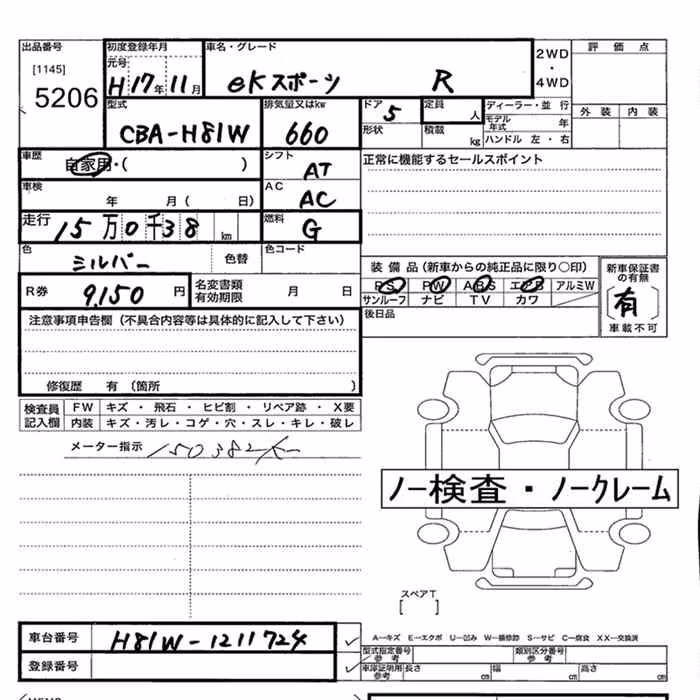 出品番号 初度登録年月 車名・グレード 2WD・4WD 評価点
[1145] 元号
5206 H17年11月 eKスポーツ R
型式 排気量又はkw ドア 定員 ディーラー・並行 外装 内装
CBA-H81W 660 5 人 モデル年式 年
形状 積載 kg ハンドル 左・右
車歴 自家用・( ) シフト AT 正常に機能するセールスポイント
車検 年 月( 日) AC AC
走行 15万0千38 km 燃料 G
色 ミルバー 色替 色コード
装備品(新車からの純正品に限り○印) 新車保証書の有無
R券 9,150 円 名変書類有効期限 月 日 PS PW ABS エアB アルミW [有]
サンルーフ ナビ TV カワ 車載不可
注意事項申告欄(不具合内容等は具体的に記入して下さい) 後日品
修復歴 有(箇所 )
検査員記入欄 FW キズ・飛石・ヒビ割・リペア跡・X要
内装 キズ・汚レ・コゲ・穴・スレ・キレ・破レ
メーター指示 150382K
ノー検査・ノークレーム
スペアT
[ ]
車台番号 H81W-1211724 A-キズ E-エクボ U-凹み W-補修跡 S-サビ C-腐食 XX-交換済
型式指定番号 参考 類別区分番号 参考
登録番号 車庫証明用 参考 長さ cm 幅 cm 高さ cm
MEMO